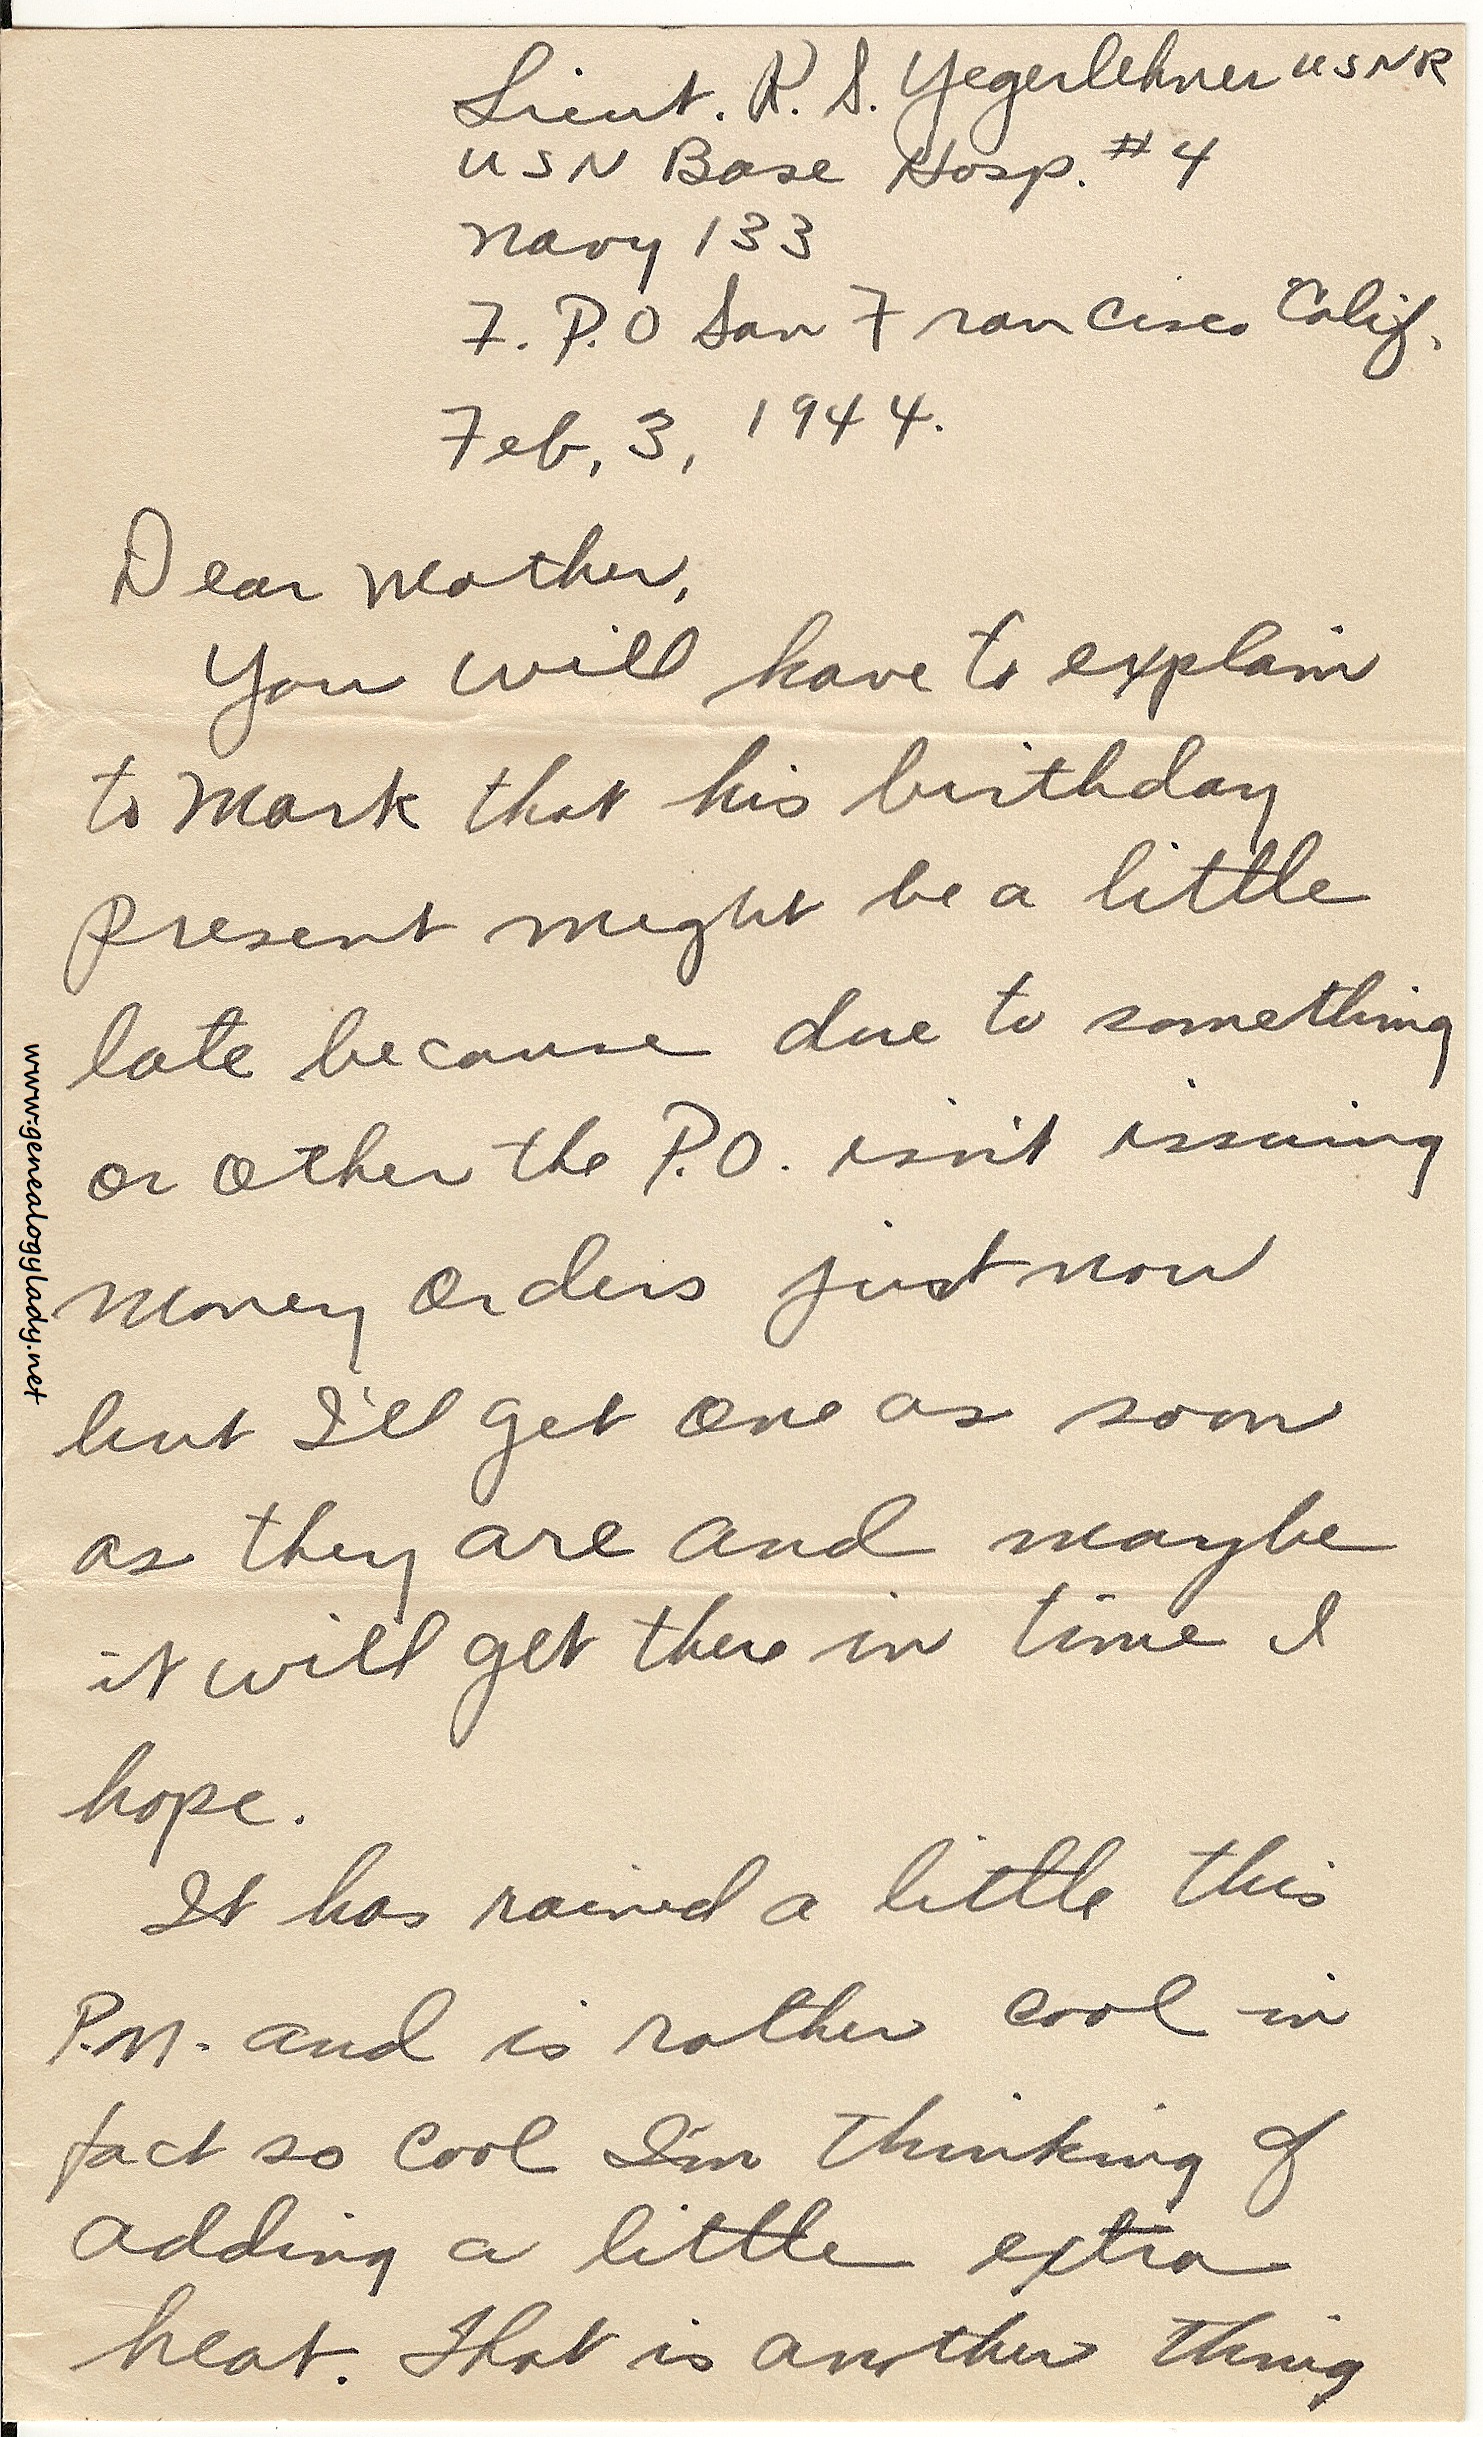 Lieut. R. S. Yegerlehner USNR
USN Base Hosp. #4
Navy 133
F.P.O San Francisco Calif.
Feb, 3, 1944.
Dear Mother,
You will have to explain
to Mark that his birthday
present might be a little
late because due to something
or other the P.O. isn't issuing
money orders just now
but I'll get one as soon
as they are and maybe
it will get there in time I
hope.
It has rained a little this
P.M. and is rather cool in
fact so cool I'm thinking of
adding a little extra
heat. That is another thing
www.genealogylady.net